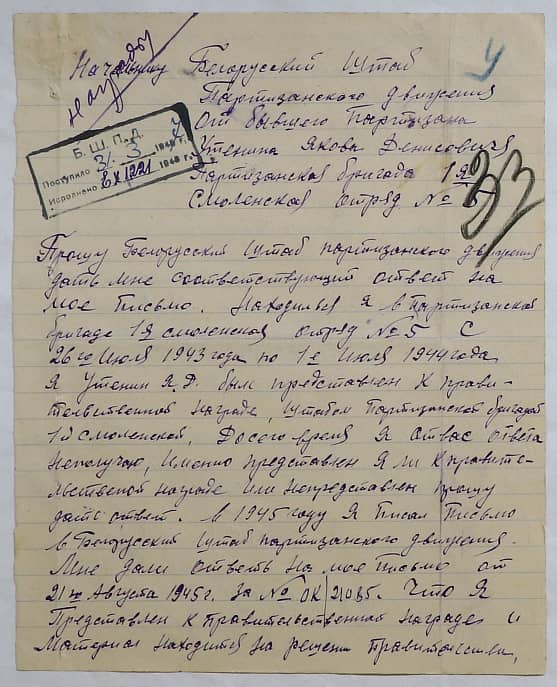 награды
Начальнику Белорусский Штаб
Партизанского движения
От бывшего партизана
Утенина Якова Денисовича
Партизанская бригада 1я
Смоленская отряд № 5
У
33
Б. Ш. П. Д.
Поступило 31. 3 194 7
Исполнено Вх 1221 194 г.
Прошу Белорусский Штаб партизанского движения
дать мне соответствующий ответ на
мое письмо. Находился я в партизанской
бригаде 1я смоленская отряд № 5 С
26го Июля 1943 года по 1е Июля 1944 года
Я Утенин Я.Д. был представлен к прави-
тельственной награде, Штабом Партизанской бригадой
1й смоленской, Досего время Я от вас ответа
неполучаю, Именно представлен Я ли к правите-
льственой награде или непредставлен прошу
дать ответ. в 1945 году Я писал письмо
в Белорусский штаб партизанского движения.
Мне дали ответь на мое письмо от
21го Августа 1945 г. за № ОК/21085. Что Я
Представлен к правительственной награде и
Материал находится на решении